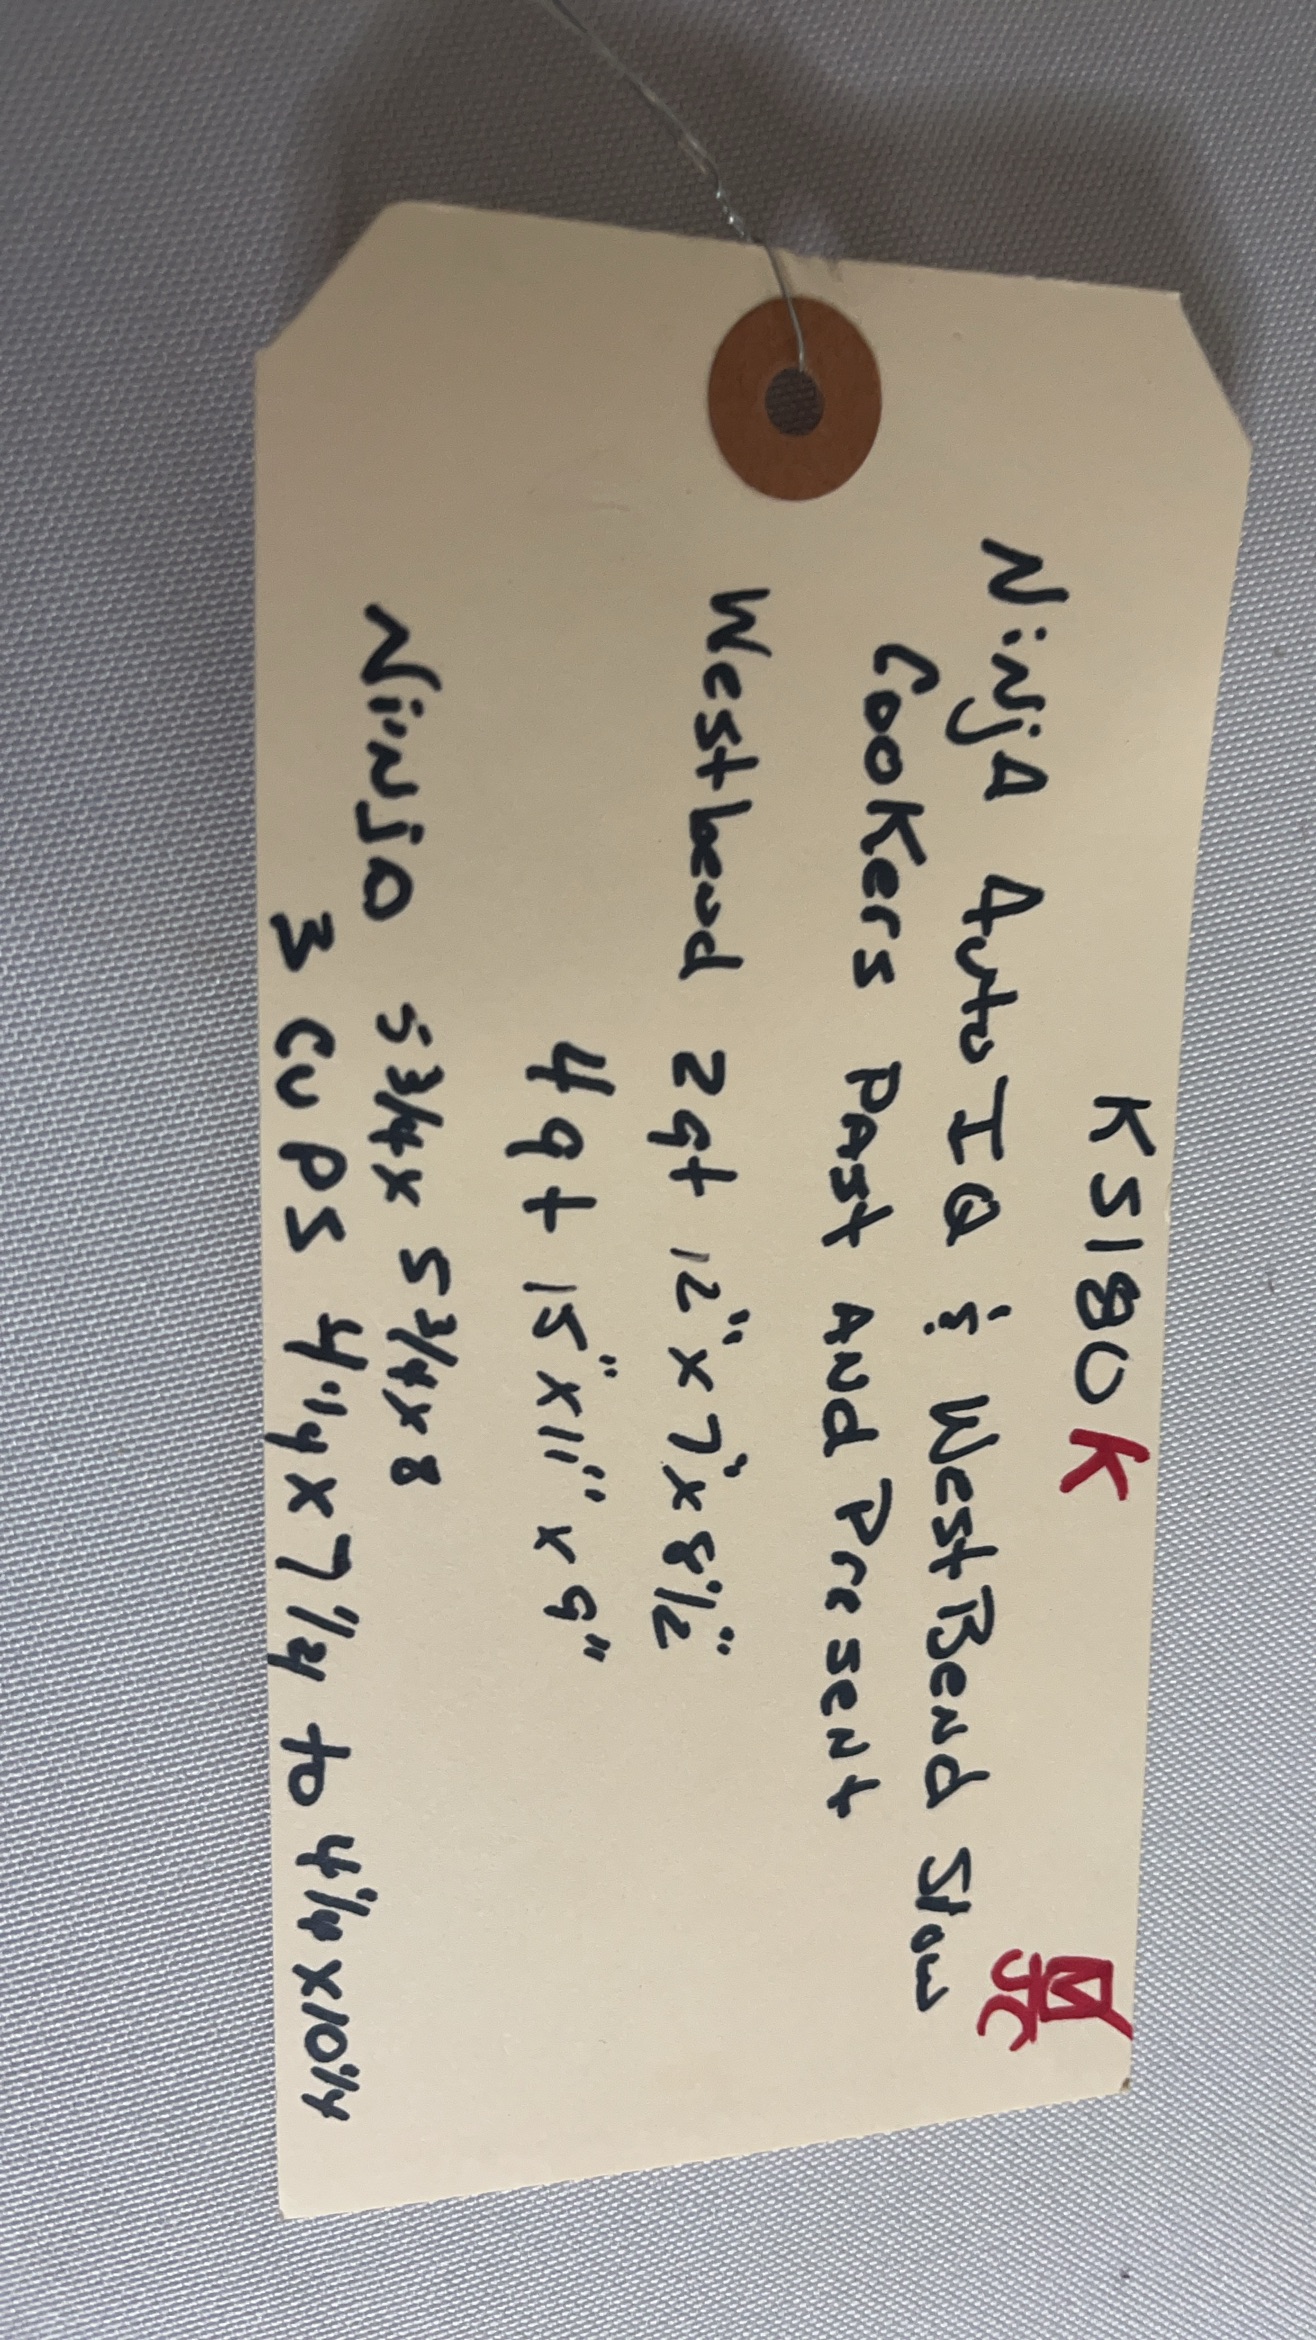 KS180K
NinjA Auto IQ & WestBend Slow
Cookers PAst ANd PresenT
Westbend 2qt 12" x 7" x 8 1/2"
4qt 15" x 11" x 9"
Ninja 5 3/4 x 5 3/4 x 8
3 CUPS 4 1/4 x 7 1/4 to 4 1/4 x 10 1/4